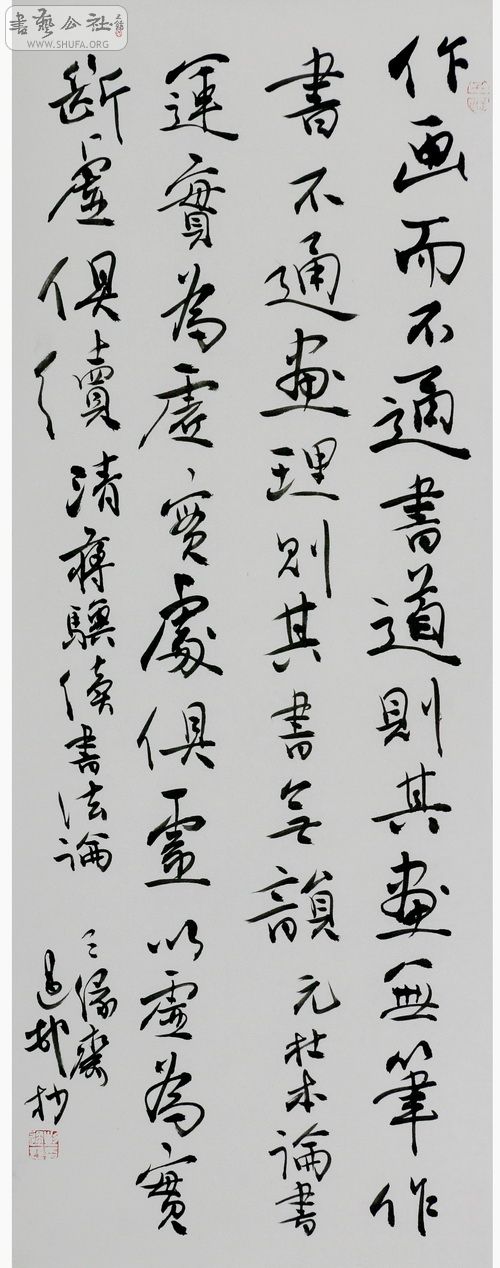 書藝公社
WWW.SHUFA.ORG
作画而不通書道則其畫無筆作
書不通畫理則其書无韻 元杜本論書
運實為虛實處俱靈以虛為實
斷虛俱續 清蔣驥續書法論
三緣齋
邨抄